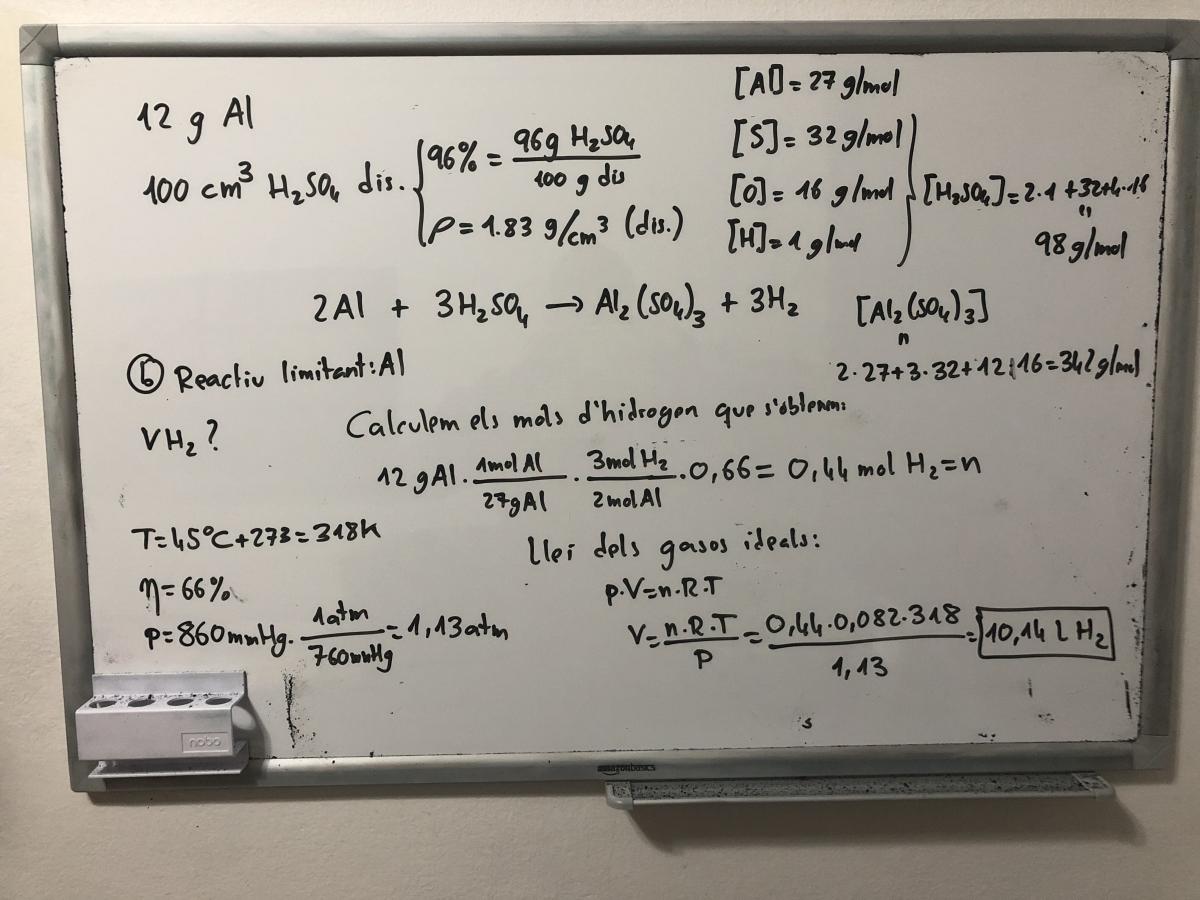 12 g Al
100 cm³ H₂SO₄ dis. { 96% = 96g H₂SO₄ / 100 g dis
ρ = 1.83 g/cm³ (dis.)
[Al] = 27 g/mol
[S] = 32 g/mol
[O] = 16 g/mol
[H] = 1 g/mol
[H₂SO₄] = 2·1 + 32 + 4·16
"
98 g/mol
2Al + 3H₂SO₄ → Al₂(SO₄)₃ + 3H₂
[Al₂(SO₄)₃]
"
2·27+3·32+12·16=342 g/mol
ⓑ Reactiu limitant: Al
VH₂?
Calculem els mols d'hidrogen que s'obtenen:
12 gAl · 1mol Al / 27gAl · 3mol H₂ / 2molAl · 0,66 = 0,44 mol H₂ = n
T=45°C+273=318K
η=66%
P=860mmHg · 1atm / 760mmHg = 1,13atm
Llei dels gasos ideals:
p.V=n.R.T
V= n.R.T / P = 0,44·0,082·318 / 1,13 = 10,14 L H₂
nobo
amazonbasics